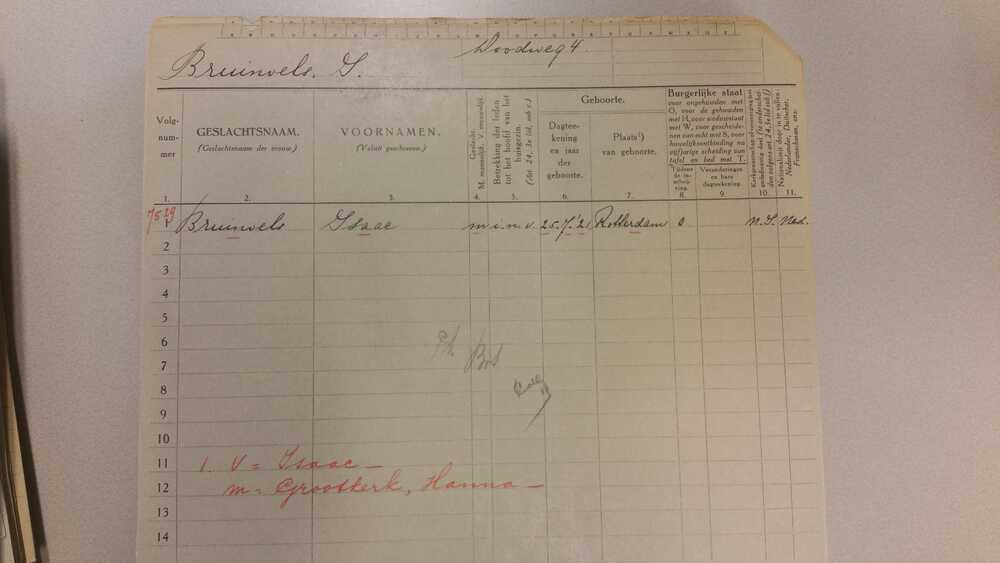 Doodweg 4.
Bruinvels, I.
Volg-
num-
mer
GESLACHTSNAAM.
(Geslachtsnaam der vrouw.)
VOORNAMEN.
(Voluit geschreven.)
Geslacht
M. mannelijk, V. vrouwelijk.
Betrekking der leden
tot het hoofd van het
huisgezin.
(Art. 24, 3e lid, sub c.)
Geboorte.
Dagtee-
kening
en jaar
der
geboorte.
Plaats¹)
van geboorte.
Burgerlijke staat
voor ongehuwden met
O, voor de gehuwden
met H, voor weduwstaat
met W, voor gescheide-
nen van echt met S, voor
huwelijksontbinding na
vijfjarige scheiding van
tafel en bed met T.
Tijdens
de in-
schrij-
ving.
Veranderingen
en hare
dagteekening.
Nationaliteit door in te vullen:
Nederlander, Duitscher,
Franschman, enz.
1. 2. 3. 4. 5. 6. 7. 8. 9. 10. 11.
7529
1 Bruinvels Isaac m i.n.v. 25.7.'21 Rotterdam O N.I. Ned.
2
3
4
5
6
7
8
9
10
11 1. V = Isaac –
12 m = Grootkerk, Hanna –
13
14